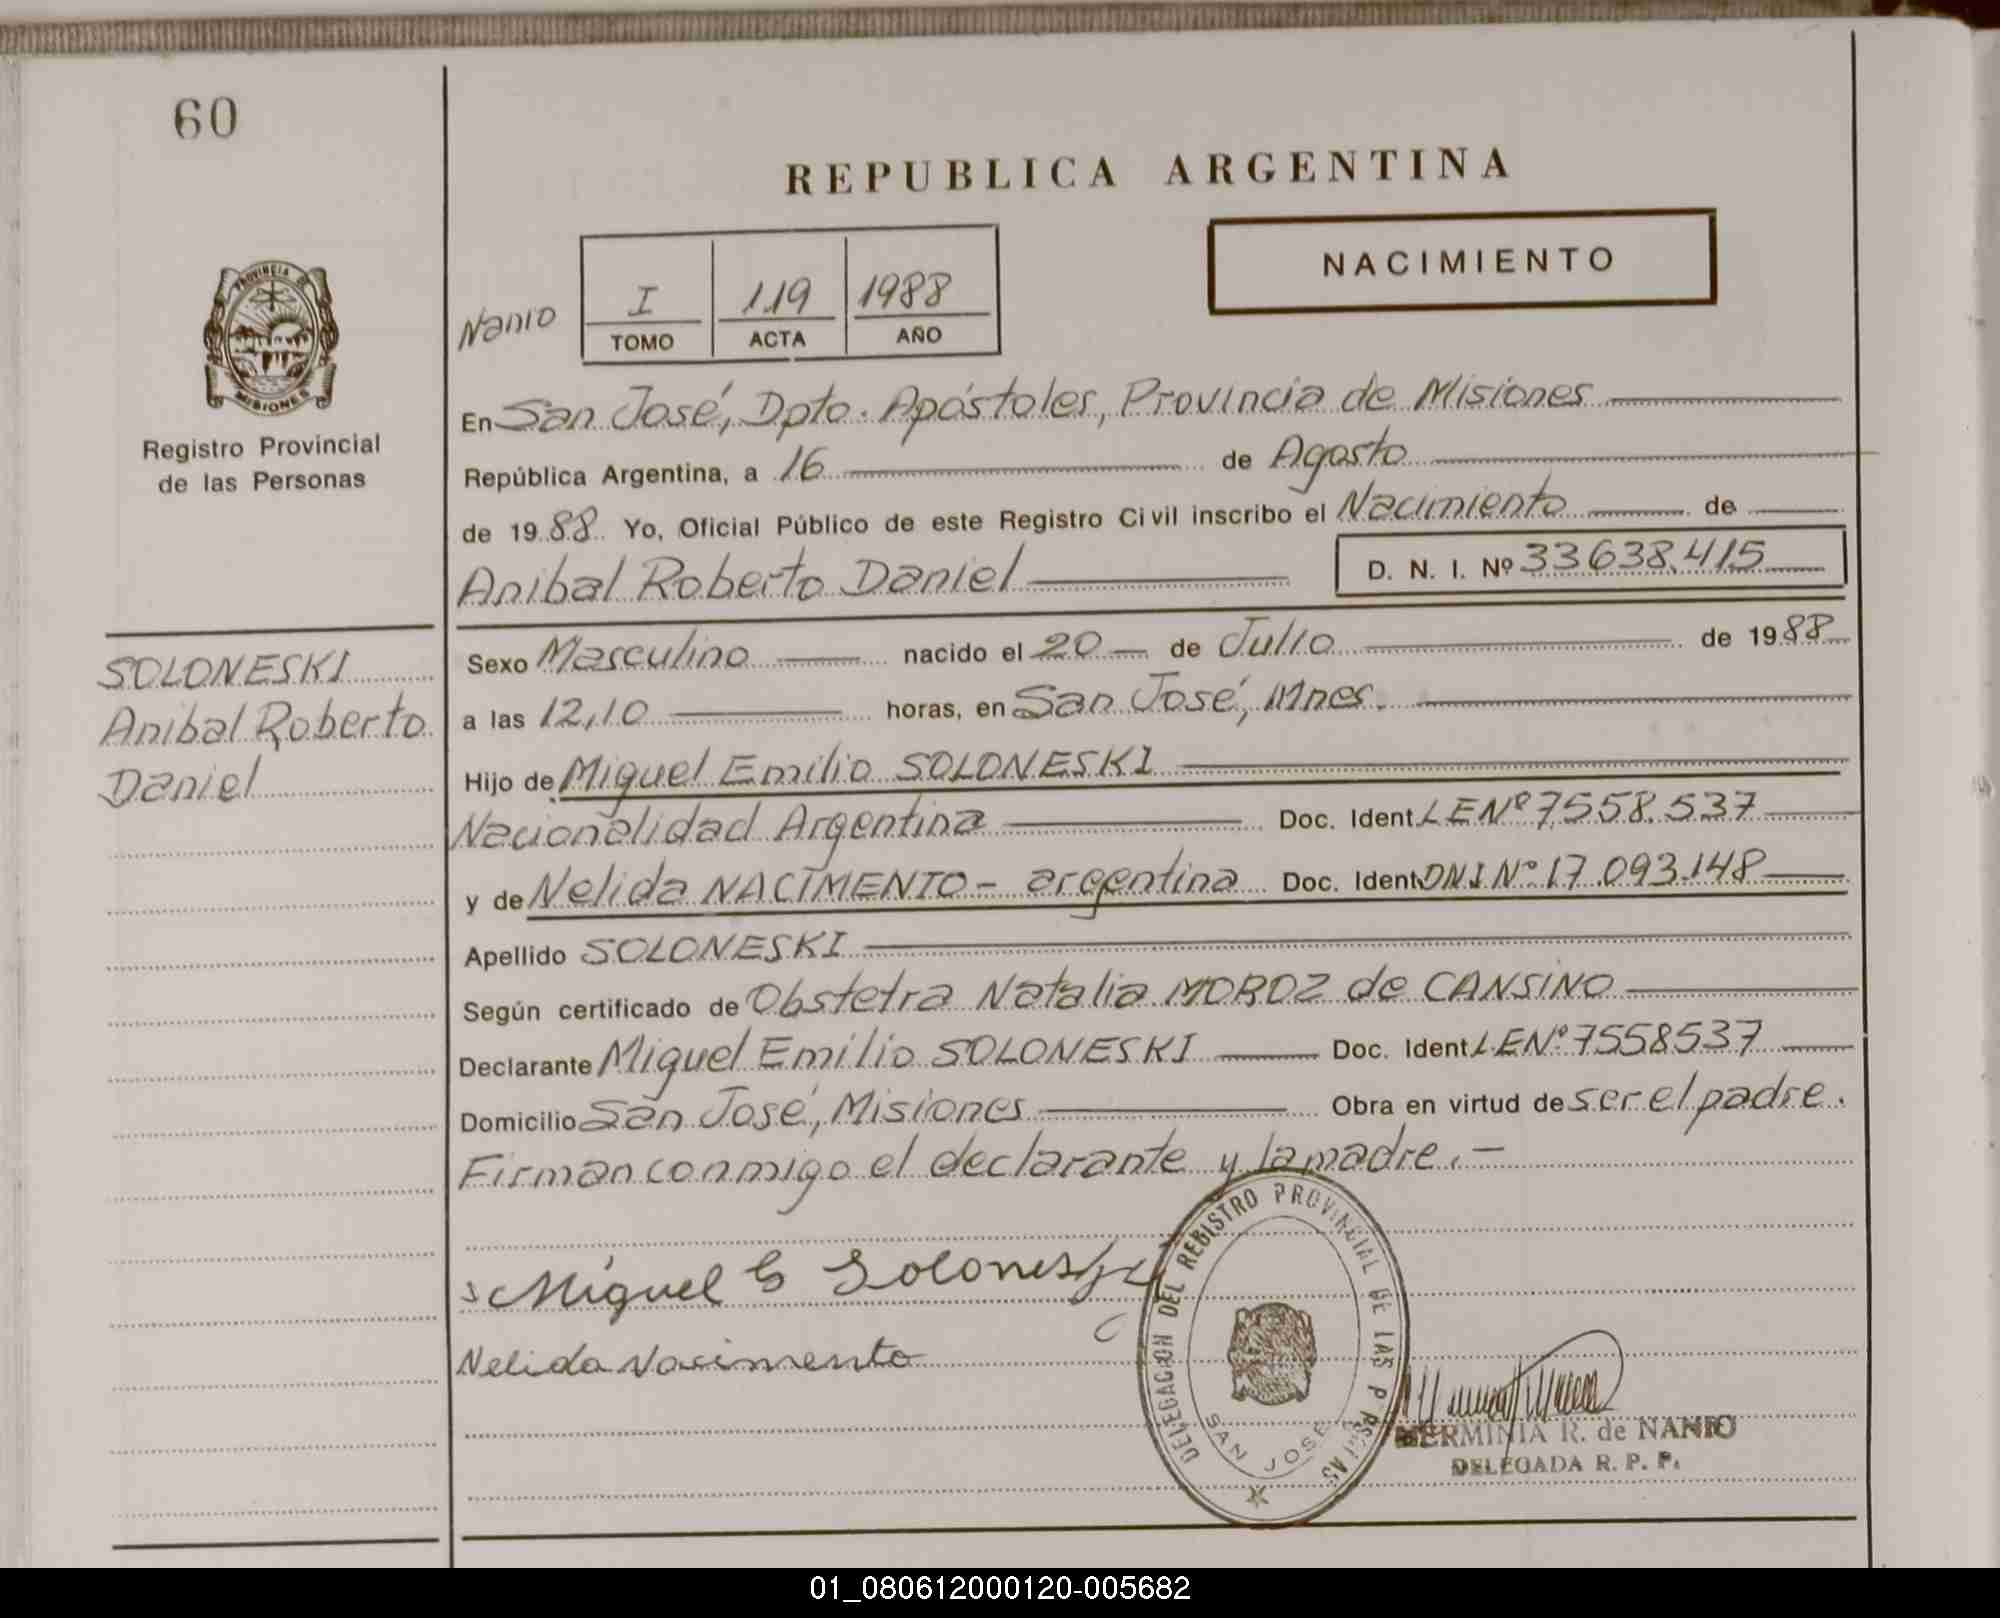 60
REPUBLICA ARGENTINA
NACIMIENTO
Nanio
I 119 1988
TOMO ACTA AÑO
PROVINCIA DE
MISIONES
Registro Provincial
de las Personas
En San José, Dpto. Apóstoles, Provincia de Misiones
República Argentina, a 16 de Agosto
de 1988 Yo, Oficial Público de este Registro Civil inscribo el Nacimiento de
Anibal Roberto Daniel D. N. I. Nº 33638.415
SOLONESKI
Anibal Roberto
Daniel
Sexo Masculino nacido el 20 de Julio de 1988
a las 12,10 horas, en San José, Mnes.
Hijo de Miguel Emilio SOLONESKI
Nacionalidad Argentina Doc. Ident LENº 7.558.537
y de Nelida NACIMENTO - argentina Doc. Ident DNI Nº 17.093.148
Apellido SOLONESKI
Según certificado de Obstetra Natalia MOROZ de CANSINO
Declarante Miguel Emilio SOLONESKI Doc. Ident LENº 7558537
Domicilio San José, Misiones Obra en virtud de ser el padre.
Firman conmigo el declarante y la madre.-
Miguel E Soloneski
Nelida Nacimento
DELEGACION DEL REGISTRO PROVINCIAL DE LAS PERSONAS
SAN JOSE
HERMINIA R. de NANIO
DELEGADA R. P. P.
01_080612000120-005682